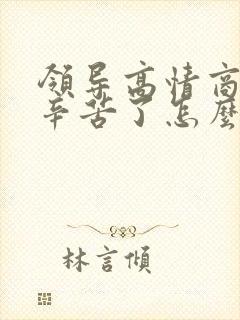 领导高情商
辛苦了怎麼
林言傾